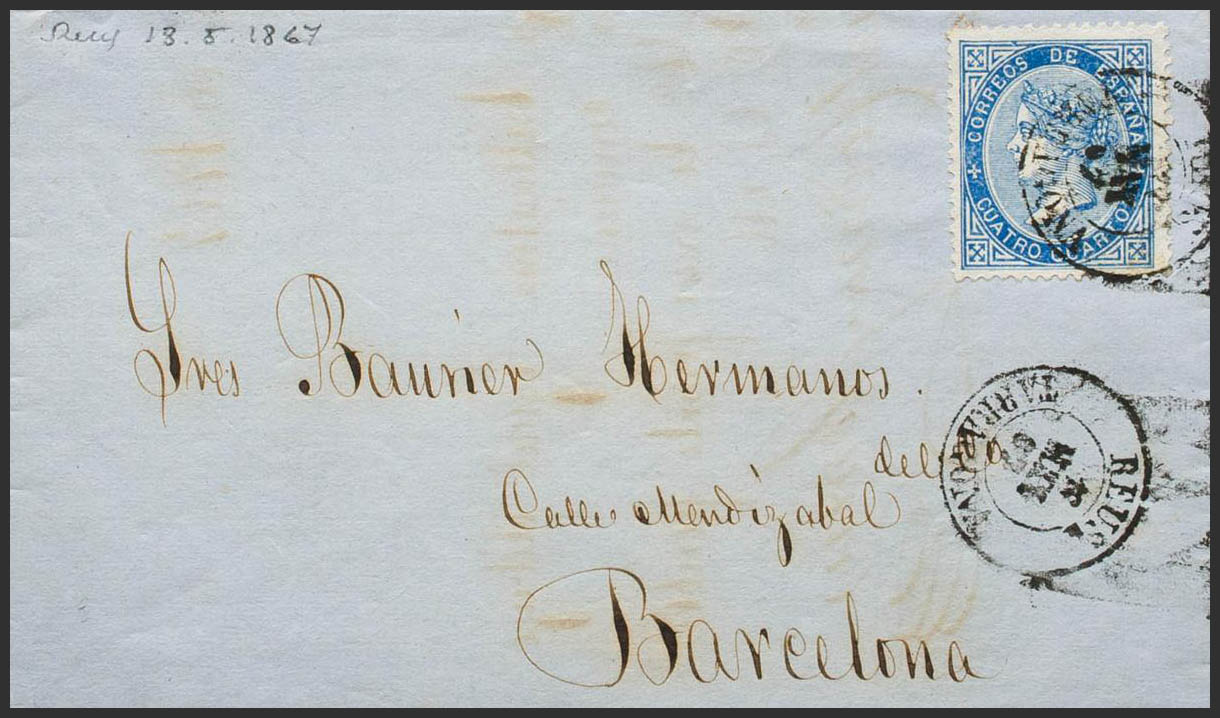 Reus 13.5.1867
CORREOS DE ESPAÑA
CUATRO CUARTOS
Sres Baurier Hermanos.
del Co
Calle Mendizabal
Barcelona
REUS
TARRAGONA